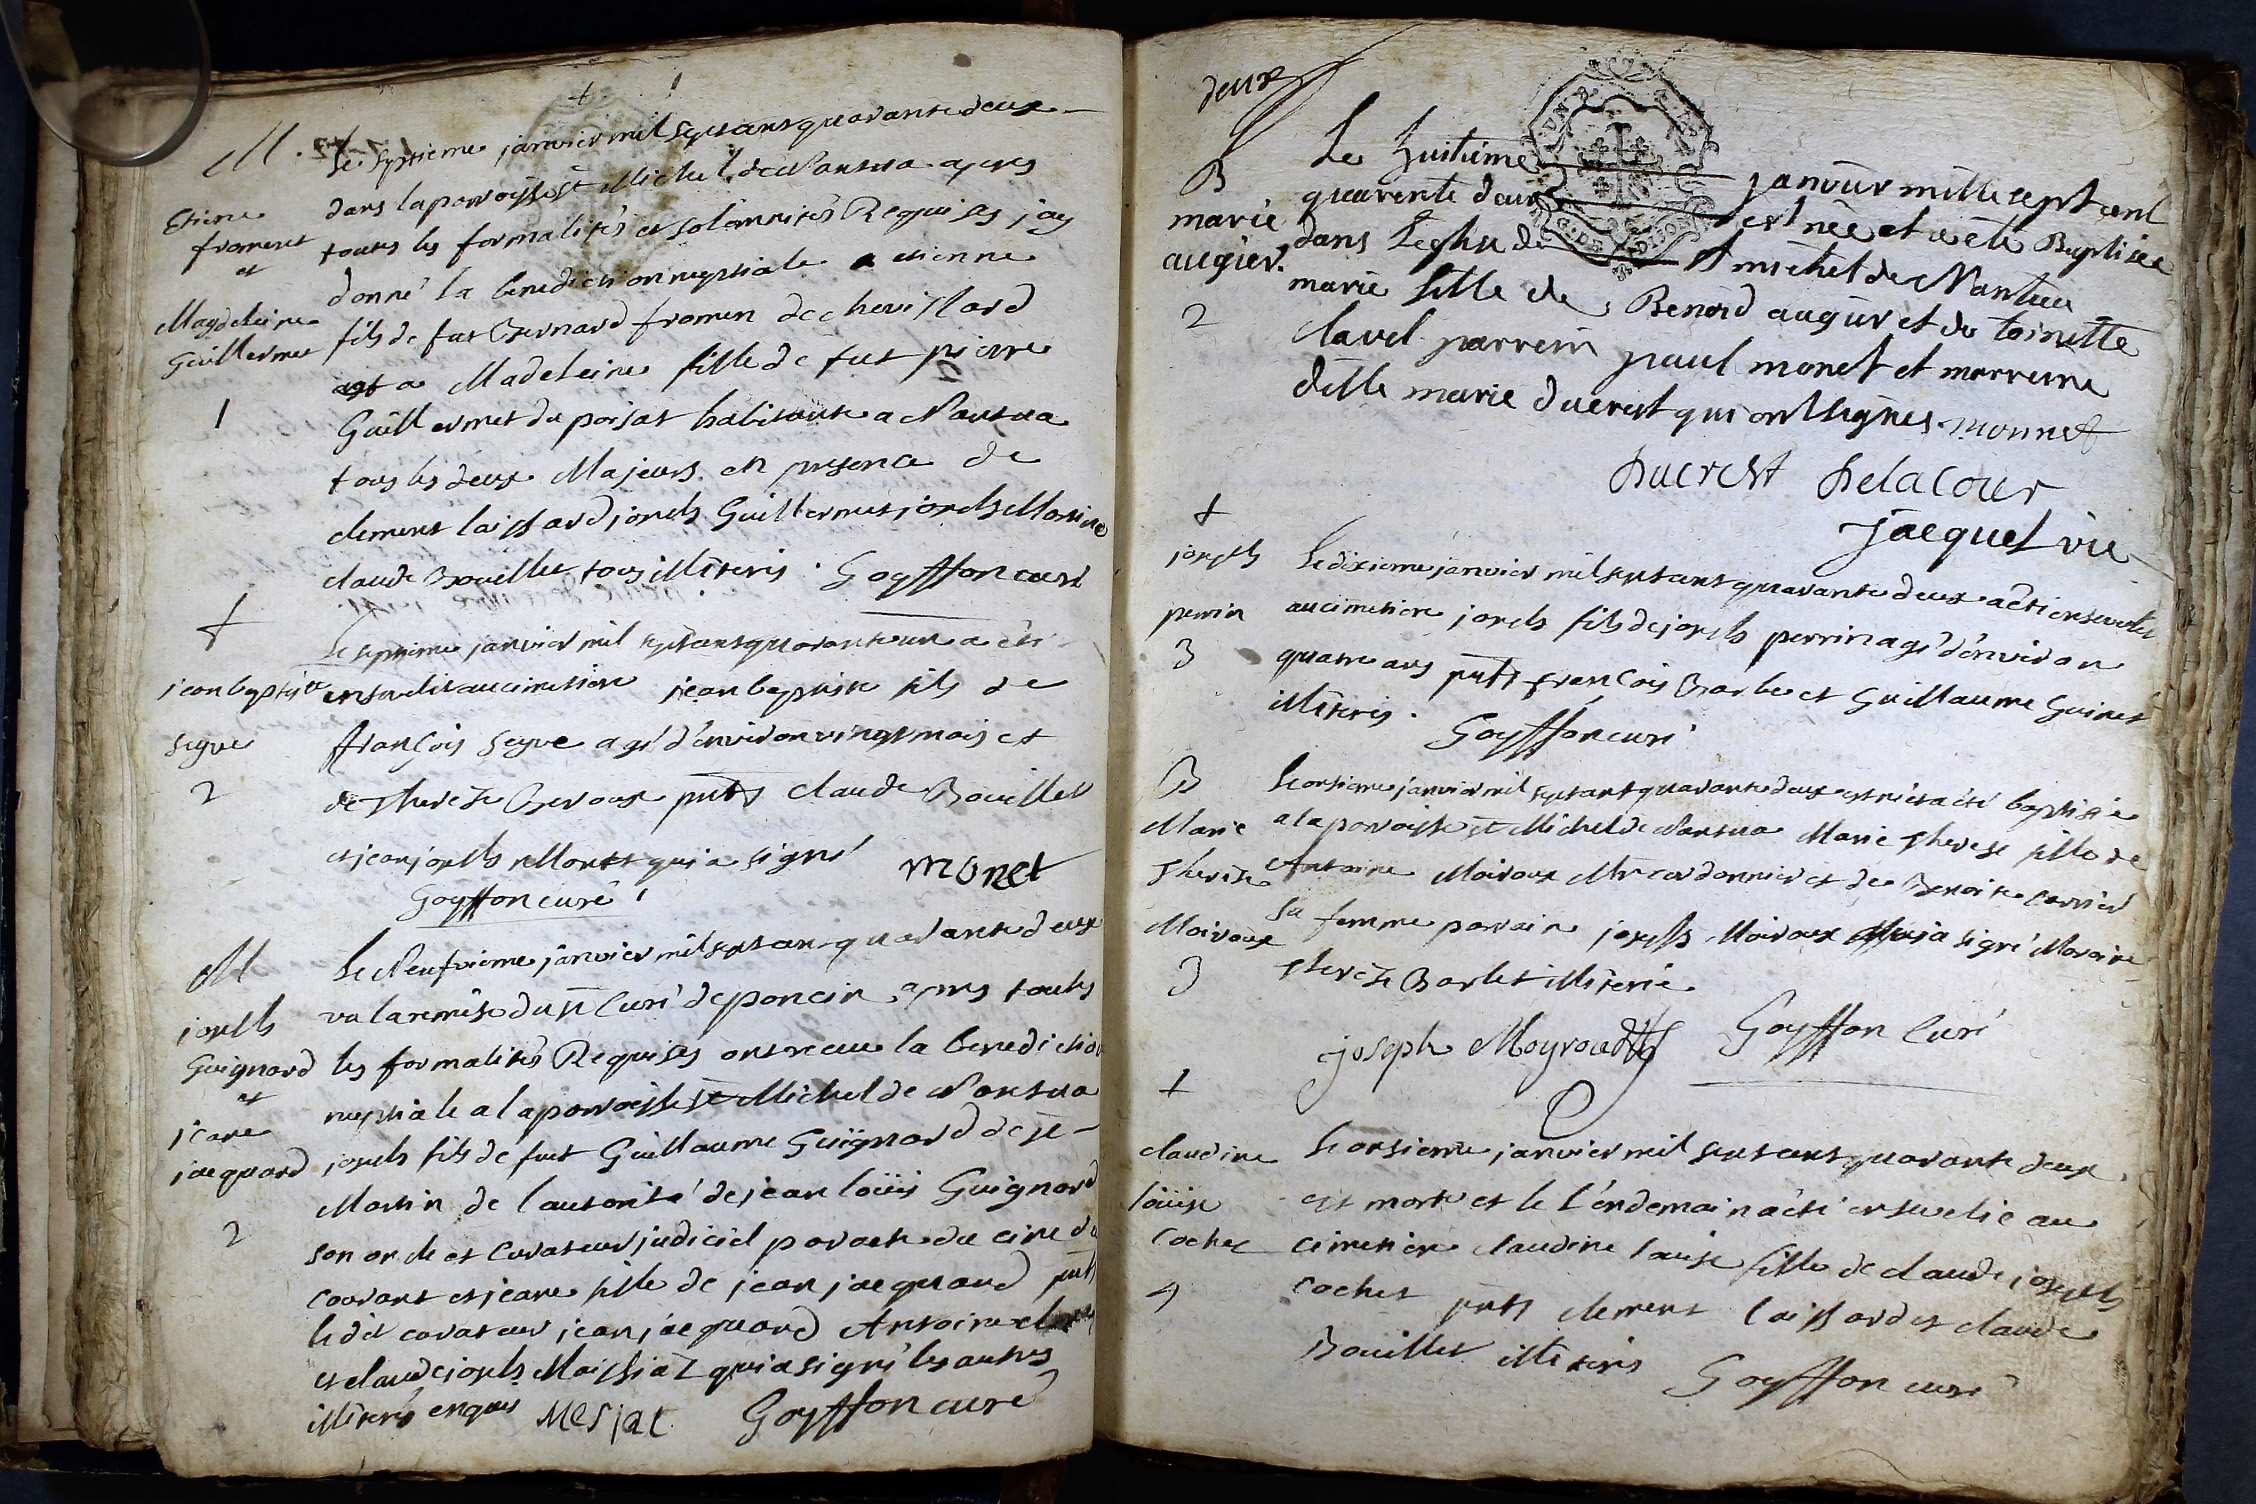 M. Le Septieme janvier mil septcent quarante deux
dans la parroisse St Michel de Nantua apres
Etiene
froment
et
toutes les formalités et solemnités Requises jay
donné la benediction nuptiale a etienne
Magdeleine
Guillermet
fils de fut Bernard fromen de chevillard
et a Madeleine fille de fut pierre
1
Guillermet du poisat habitante a Nantua
tous les deux Majeurs en presence de
clement laissard joseph Guillermet joseph Martine
claude Bouillet tous illiteris. Goyffon curé
†
Le septieme janvier mil septcent quarante un a été
jean baptiste
ensevelit au cimetiere jean baptiste fils de
segve
françois segve agé d'environ vingt mois et
2
de Thereze Beroux pnts claude Bouillet
et jean joseph Monet qui a signé monet
Goyffon curé
M
Le Neufvieme janvier mil septcent quarante deux
vu la remise du Sr Curé de poncin apres toutes
joseph
Guignard
et
les formalités Requises ont receu la benediction
nuptiale a la parroisse St Michel de Nantua
jeane
jacquard
joseph fils de fut Guillaume Guignard de St
Martin de l'autorité de jean loüis Guignard
2
son oncle et Curateur judiciel par acte du cinc du
courant et jeane fille de jean jacquard pnts
ledit curateur jean jacquard Antoine
et claude joseph Maissiaz qui a signé les autres
illiteris enquis Mesiat Goyffon curé
deux
B
Le huitime janvier mille sept cent
marie
augier.
quarente deux est née et a été Baptisée
dans Leglise de St michel de Nantua
marie fille de Benoid augier et de toinette
2
clavel parrein paul monet et marreine
dëlle marie ducrest qui ont signes. monnet
Ducrest Delacour
Jacquet vic
†
joseph
Le dixieme janvier mil septcent quarante deux a été ensevelit
perrin
au cimetiere joseph fils de joseph perrin agé d'environ
3
quatre ans pnts françois Barbe et Guillaume Guinet
illiteris. Goyffon curé
B
Le onsieme janvier mil septcent quarante deux est né et a été baptisée
Marie
a la parroisse St Michel de Nantua Marie Therese fille de
Therese
Antoine Moiroux Mre cordonnier et de Benoite carrier
Moiroux
sa femme parrain joseph Moiroux qui a signé Maraine
3
Thereze Barlet illiterée
joseph Moyroud Goyffon Curé
†
claudine
Le onsieme janvier mil septcent quarante deux
loüise
est morte et le l'endemain a été ensevelie au
cochet
cimetiere claudine louise fille de claude joseph
4
cochet pnts clement laissard et claude
Bouillet illiteris Goyffon curé